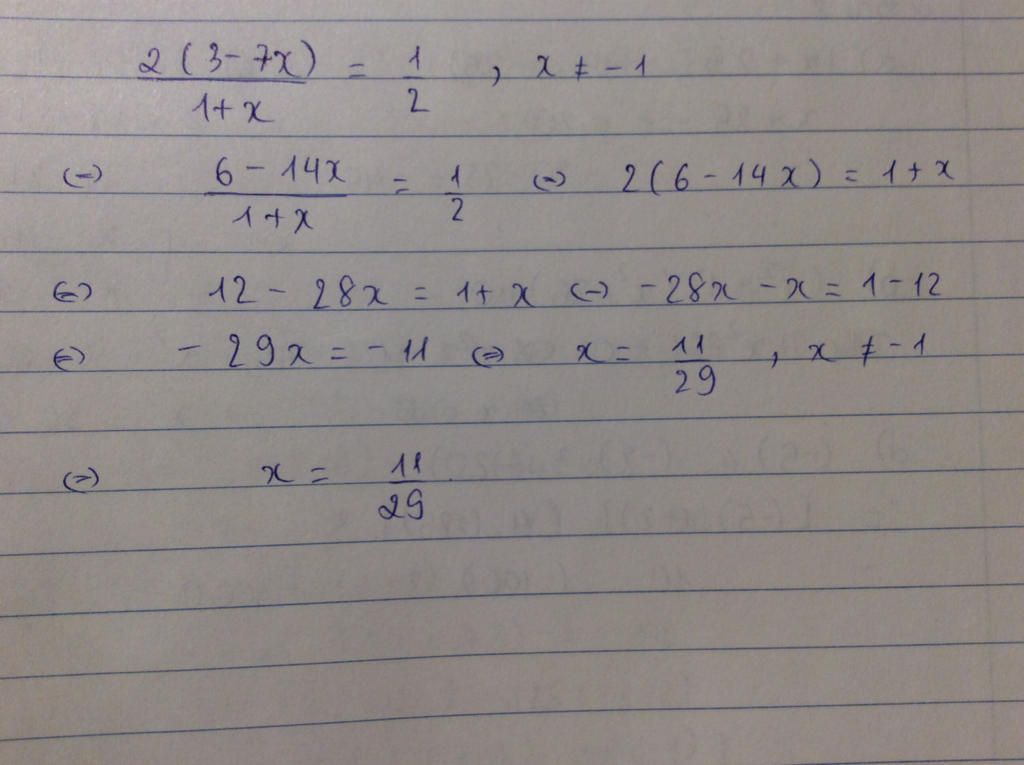 2(3-7x)/1+x = 1/2 , x ≠ -1
⇔ 6-14x/1+x = 1/2 ⇔ 2(6-14x) = 1+x
⇔ 12 - 28x = 1+x ⇔ -28x - x = 1-12
⇔ -29x = -11 ⇔ x = 11/29 , x ≠ -1
⇔ x = 11/29